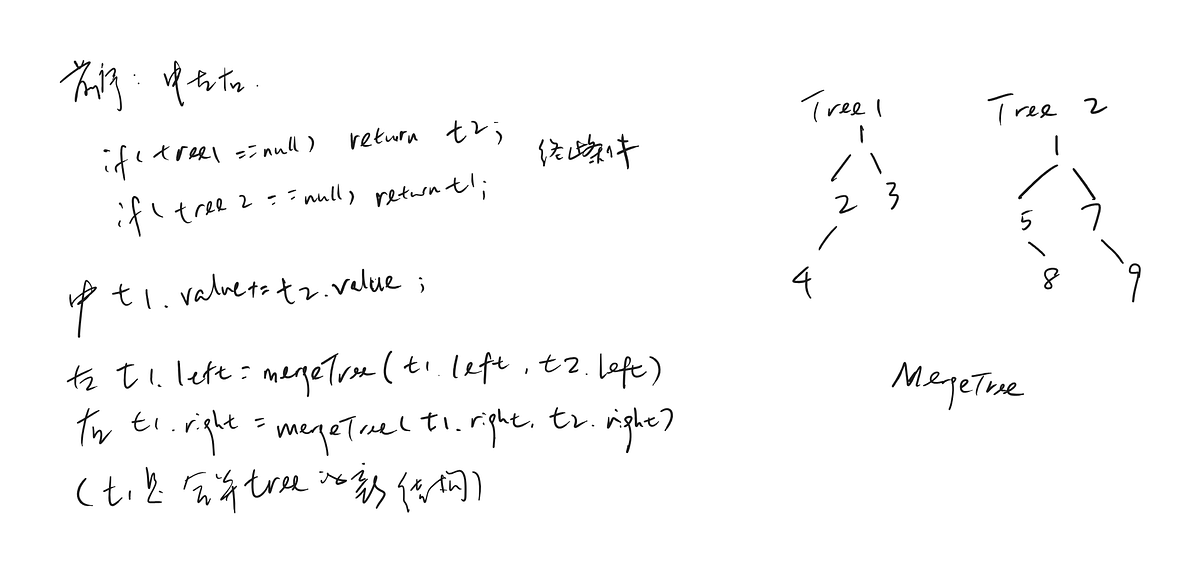 前序：中左右.
if(tree1 ==null) return t2;
if(tree2 ==null) return t1;
终止条件
中 t1.value+=t2.value;
左 t1.left=mergeTree(t1.left, t2.left)
右 t1.right=mergeTree(t1.right, t2.right)
(t1是合并tree的新结构)
Tree1
1
2 3
4
Tree 2
1
5 7
8 9
MergeTree